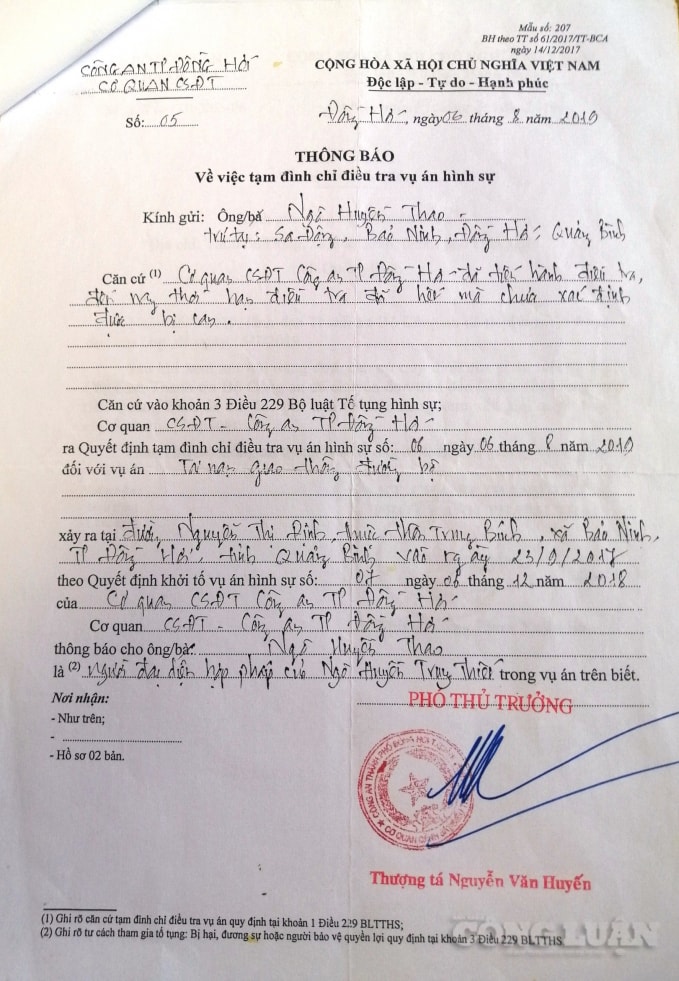 Mẫu số: 207
BH theo TT số 61/2017/TT-BCA
ngày 14/12/2017
CÔNG AN TP ĐỒNG HỚI
CƠ QUAN CSĐT
CỘNG HÒA XÃ HỘI CHỦ NGHĨA VIỆT NAM
Độc lập - Tự do - Hạnh phúc
Số: 05
Đồng Hới, ngày 06 tháng 8 năm 2019
THÔNG BÁO
Về việc tạm đình chỉ điều tra vụ án hình sự
Kính gửi: Ông/bà Ngô Huyền Thao
trú tại: Sa Động, Bảo Ninh, Đồng Hới, Quảng Bình
Căn cứ (1) Cơ quan CSĐT Công an TP Đồng Hới đã tiến hành điều tra,
đến nay thời hạn điều tra đã hết mà chưa xác định
được bị can.
Căn cứ vào khoản 3 Điều 229 Bộ luật Tế tụng hình sự;
Cơ quan CSĐT - Công an TP Đồng Hới
ra Quyết định tạm đình chỉ điều tra vụ án hình sự số: 06 ngày 06 tháng 8 năm 2019
đối với vụ án Tai nạn giao thông đường bộ
xảy ra tại đường Nguyễn Thị Định, thuộc thôn Trung Bính, xã Bảo Ninh,
TP Đồng Hới, tỉnh Quảng Bình vào ngày 23/9/2017
theo Quyết định khởi tố vụ án hình sự số: 07 ngày 06 tháng 12 năm 2018
của Cơ quan CSĐT Công an TP Đồng Hới
Cơ quan CSĐT - Công an TP Đồng Hới
thông báo cho ông/bà: Ngô Huyền Thao
là (2) người đại diện hợp pháp của Ngô Huyền Truy trong vụ án trên biết.
Nơi nhận:
- Như trên;
-
- Hồ sơ 02 bản.
PHÓ THỦ TRƯỞNG
Thượng tá Nguyễn Văn Huyến
(1) Ghi rõ căn cứ tạm đình chỉ điều tra vụ án quy định tại khoản 1 Điều 229 BLTTHS;
(2) Ghi rõ tư cách tham gia tố tụng: Bị hại, đương sự hoặc người bảo vệ quyền lợi quy định tại khoản 3 Điều 229 BLTTHS
CÔNG LUẬN